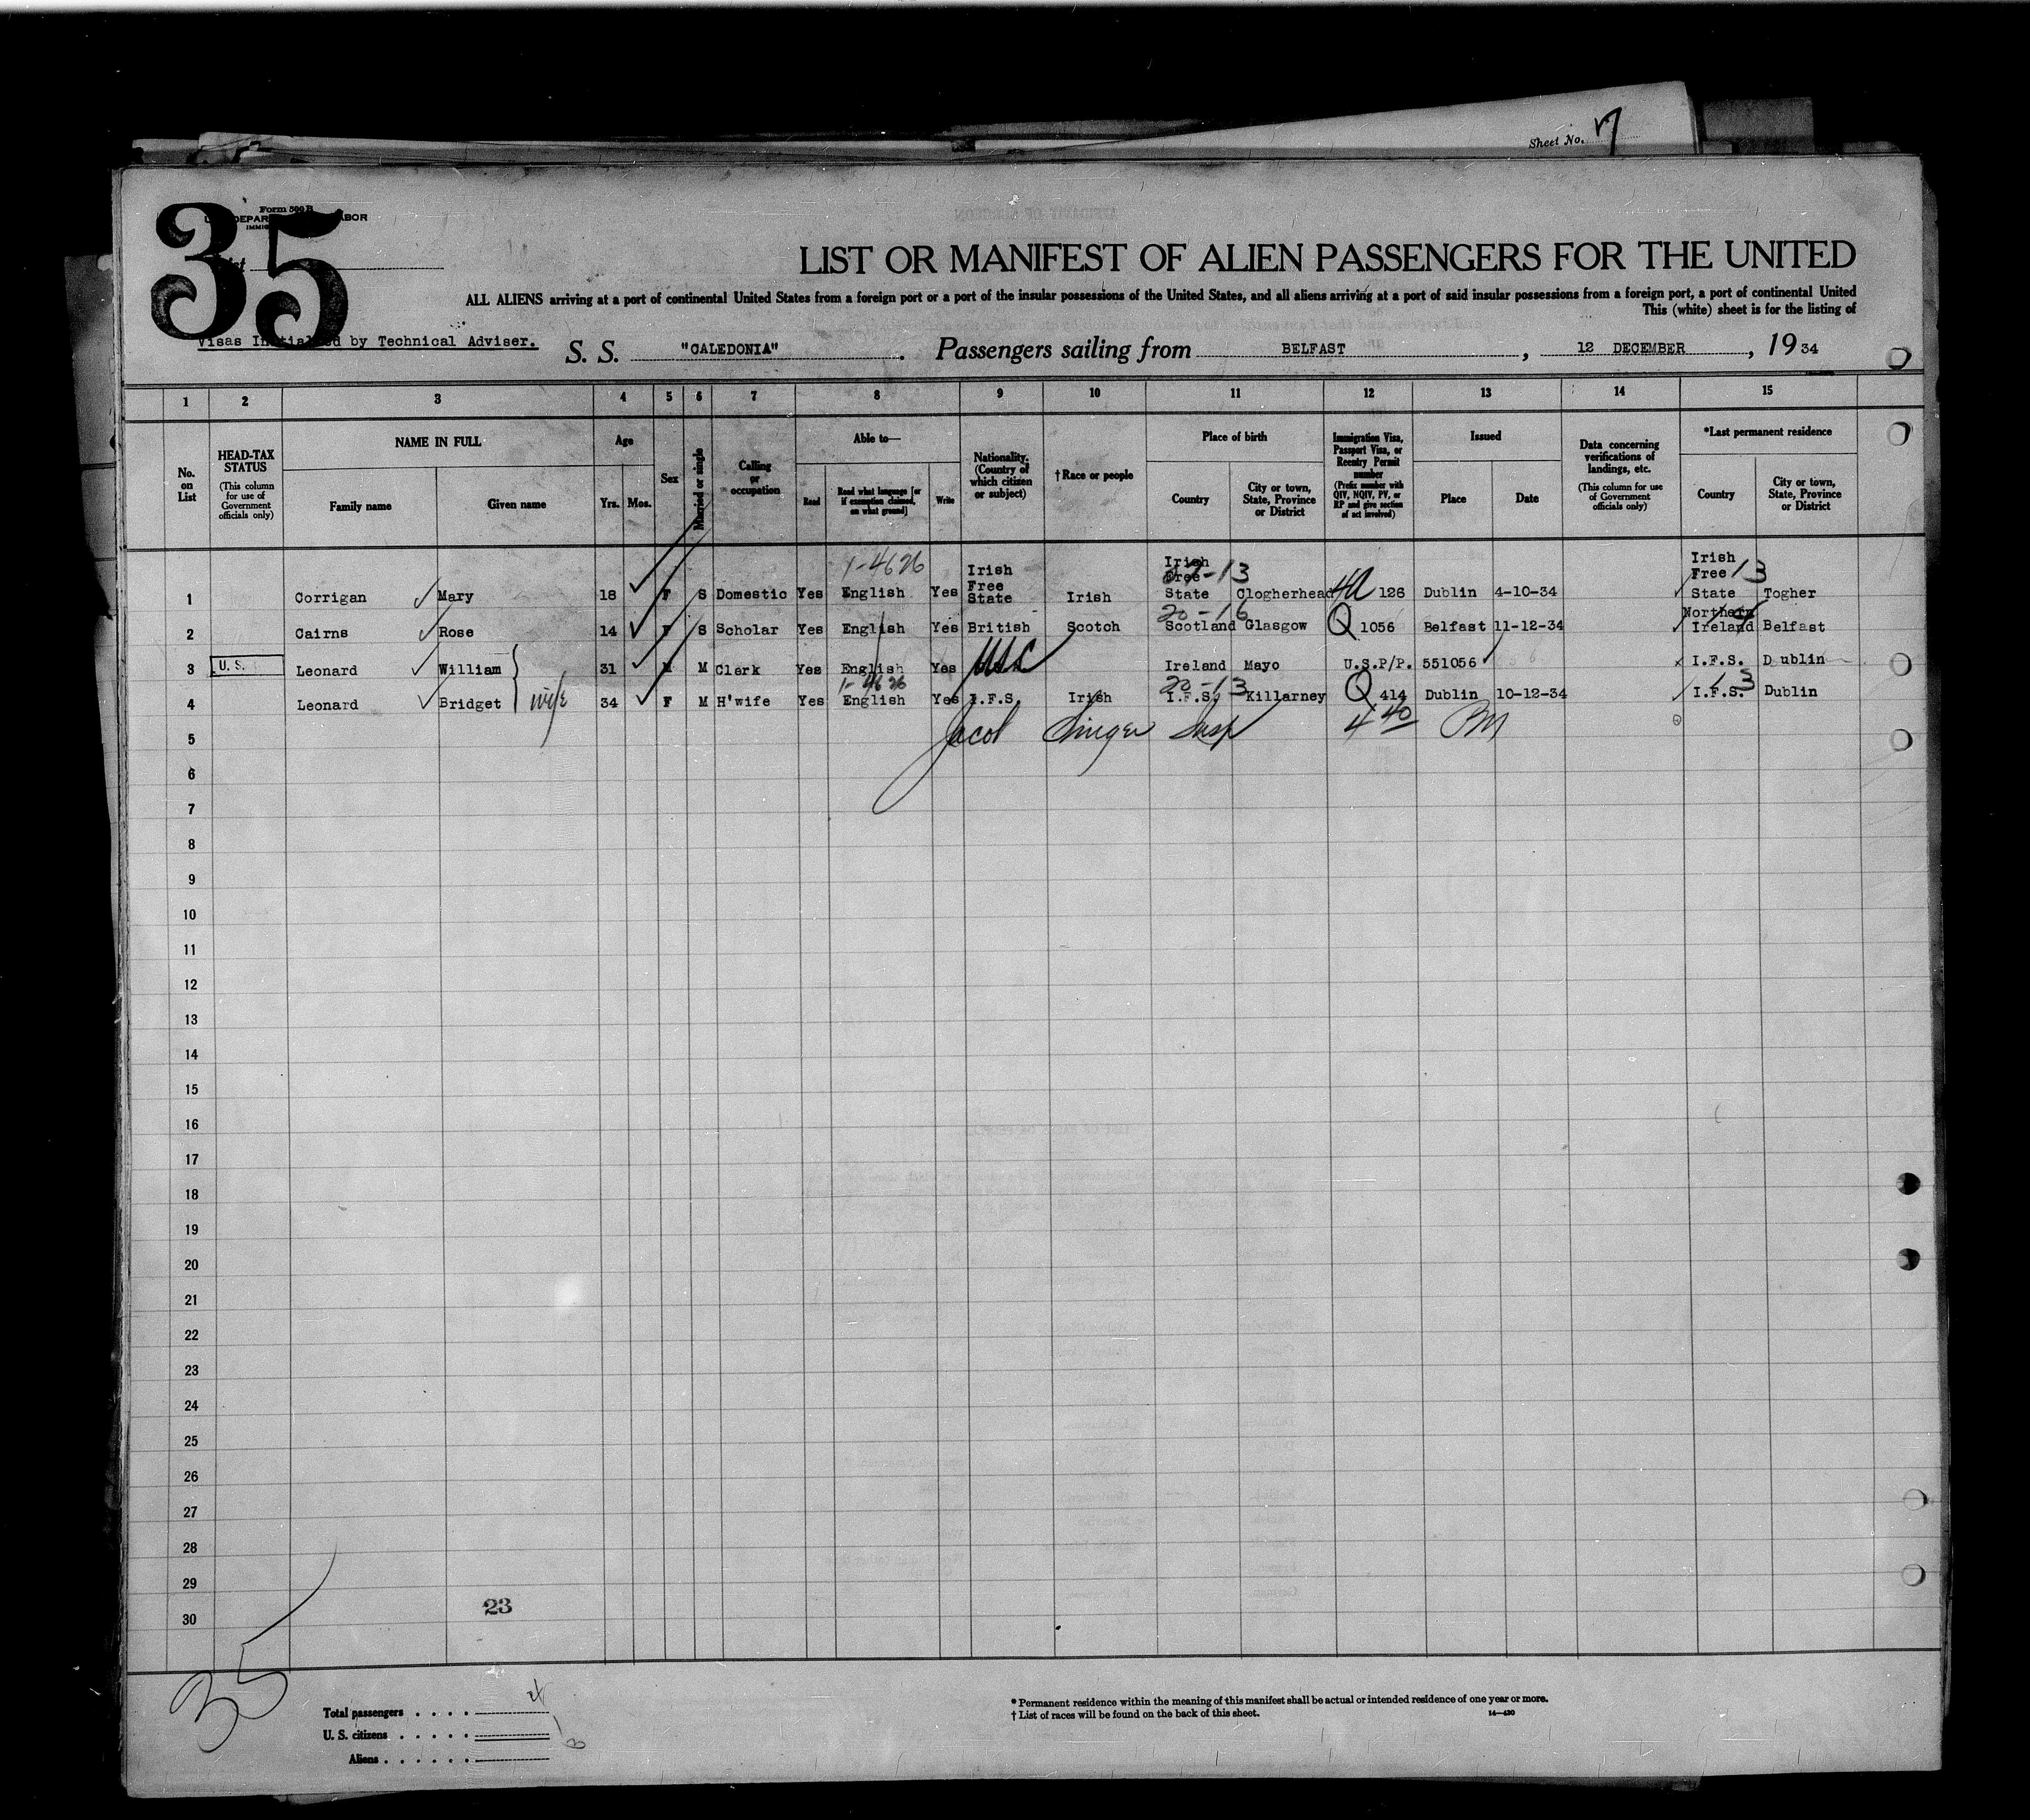 Sheet No. 7
Form 500 B
35
LIST OR MANIFEST OF ALIEN PASSENGERS FOR THE UNITED
ALL ALIENS arriving at a port of continental United States from a foreign port or a port of the insular possessions of the United States, and all aliens arriving at a port of said insular possessions from a foreign port, a port of continental United
This (white) sheet is for the listing of
Visas Initialled by Technical Adviser.
S. S. "CALEDONIA". Passengers sailing from BELFAST, 12 DECEMBER, 1934
1 2 3 4 5 6 7 8 9 10 11 12 13 14 15
No. on List
HEAD-TAX STATUS (This column for use of Government officials only)
NAME IN FULL
Family name Given name
Age
Yrs. Mos.
Sex
Married or single
Calling or occupation
Able to—
Read
Read what language [or if exemption claimed, on what ground]
Write
Nationality. (Country of which citizen or subject)
†Race or people
Place of birth
Country
City or town, State, Province or District
Immigration Visa, Passport Visa, or Reentry Permit number (Prefix number with QIV, NQIV, PV, or RP and give section of act involved)
Issued
Place Date
Data concerning verifications of landings, etc. (This column for use of Government officials only)
*Last permanent residence
Country
City or town, State, Province or District
1-4626 -13 13
1 Corrigan Mary 18 F S Domestic Yes English Yes Irish Free State Irish Irish Free State Clogherhead 126 Dublin 4-10-34 Irish Free State Togher
20-16
2 Cairns Rose 14 F S Scholar Yes English Yes British Scotch Scotland Glasgow Q 1056 Belfast 11-12-34 Northern Ireland Belfast
3 U. S. Leonard William 31 M M Clerk Yes English Yes Ireland Mayo U.S.P/P. 551056 I.F.S. Dublin
1-4626 20-13 13
4 Leonard Bridget wife 34 F M H'wife Yes English Yes I.F.S. Irish I.F.S. Killarney Q 414 Dublin 10-12-34 I.F.S. Dublin
5 Jacob Singer Insp 4 40 PM
6
7
8
9
10
11
12
13
14
15
16
17
18
19
20
21
22
23
24
25
26
27
28
29
23
30
35
Total passengers . . . . 4
U. S. citizens . . . . .
Aliens . . . . . .
* Permanent residence within the meaning of this manifest shall be actual or intended residence of one year or more.
† List of races will be found on the back of this sheet.
14—430